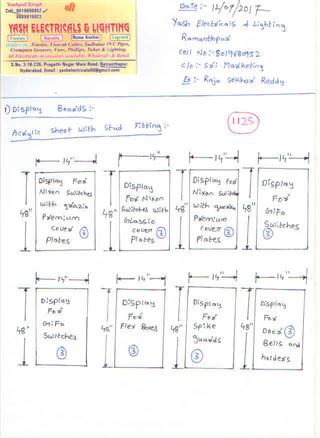 Yashpal Singh
Cell.:8019680952
YASH ELECTRICALS & LIGHTING
Finolex Havells Roma Anchor Legrand
Finolex, Finecab Cables, Sudhakar PVC Pipes,
Crompton Greaves, Fans, Phillips, Tubes & Lighting
All Electricals Accessories available, Wholesale & Retail
S.No. 3-18-230, Pragathi Nagar Main Road, Ramanthapur,
Hyderabad, Email : yashelectricals60@gmail.com
Date:- 12/07/2017
Yash Electricals & Lighting
Ramanthapur
cell No:- 8019680952
c/o:- Sri Marketing
Ex:- Raja Sekhar Reddy
1) Display Boards:-
Acrylic Sheet with Stud Fitting:-
1125
14" 14" 14" 14"
48"
Display
For
Nixon Switches
with grazia
Premium
cover
Plates
3
48"
Display
For
Nixon
Switches with
Glassio
cover
Plates
3
48"
Display for
Nixon Switches
with
Premium
cover
Plates
3
48"
Display
For
GiFa
Switches
3
14" 14" 14" 14"
48"
Display
For
GiFa
Switches
3
48"
Display
For
Flex Boxes
3
48"
Display
For
Spike
guards
3
48"
Display
For
Door 3
Bells and
holders